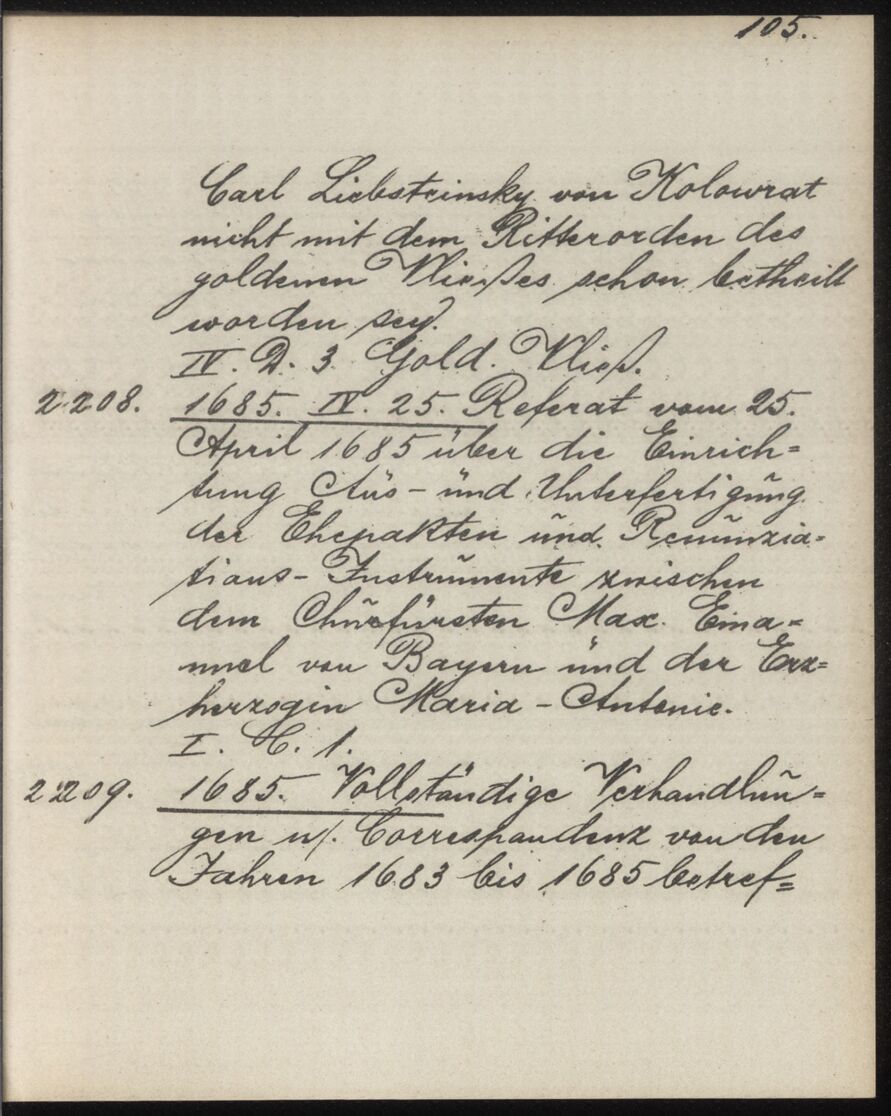 105.
Carl Liebsteinsky von Kolowrat
nicht mit dem Ritterorden des
goldenen Vließes schon betheilt
worden sey.
IV. D. 3. Gold. Vließ.
2208. 1685. IV. 25. Referat vom 25.
April 1685 über die Einrich=
tung Aus- und Unterfertigung
der Ehepakten und Renunzia=
tions-Instrumente zwischen
dem Churfürsten Max. Ema=
nuel von Bayern und der Erz=
herzogin Maria-Antonie.
I. C. 1.
2209. 1685. Vollständige Verhandlun=
gen u/. Correspondenz von den
Jahren 1683 bis 1685 betref=